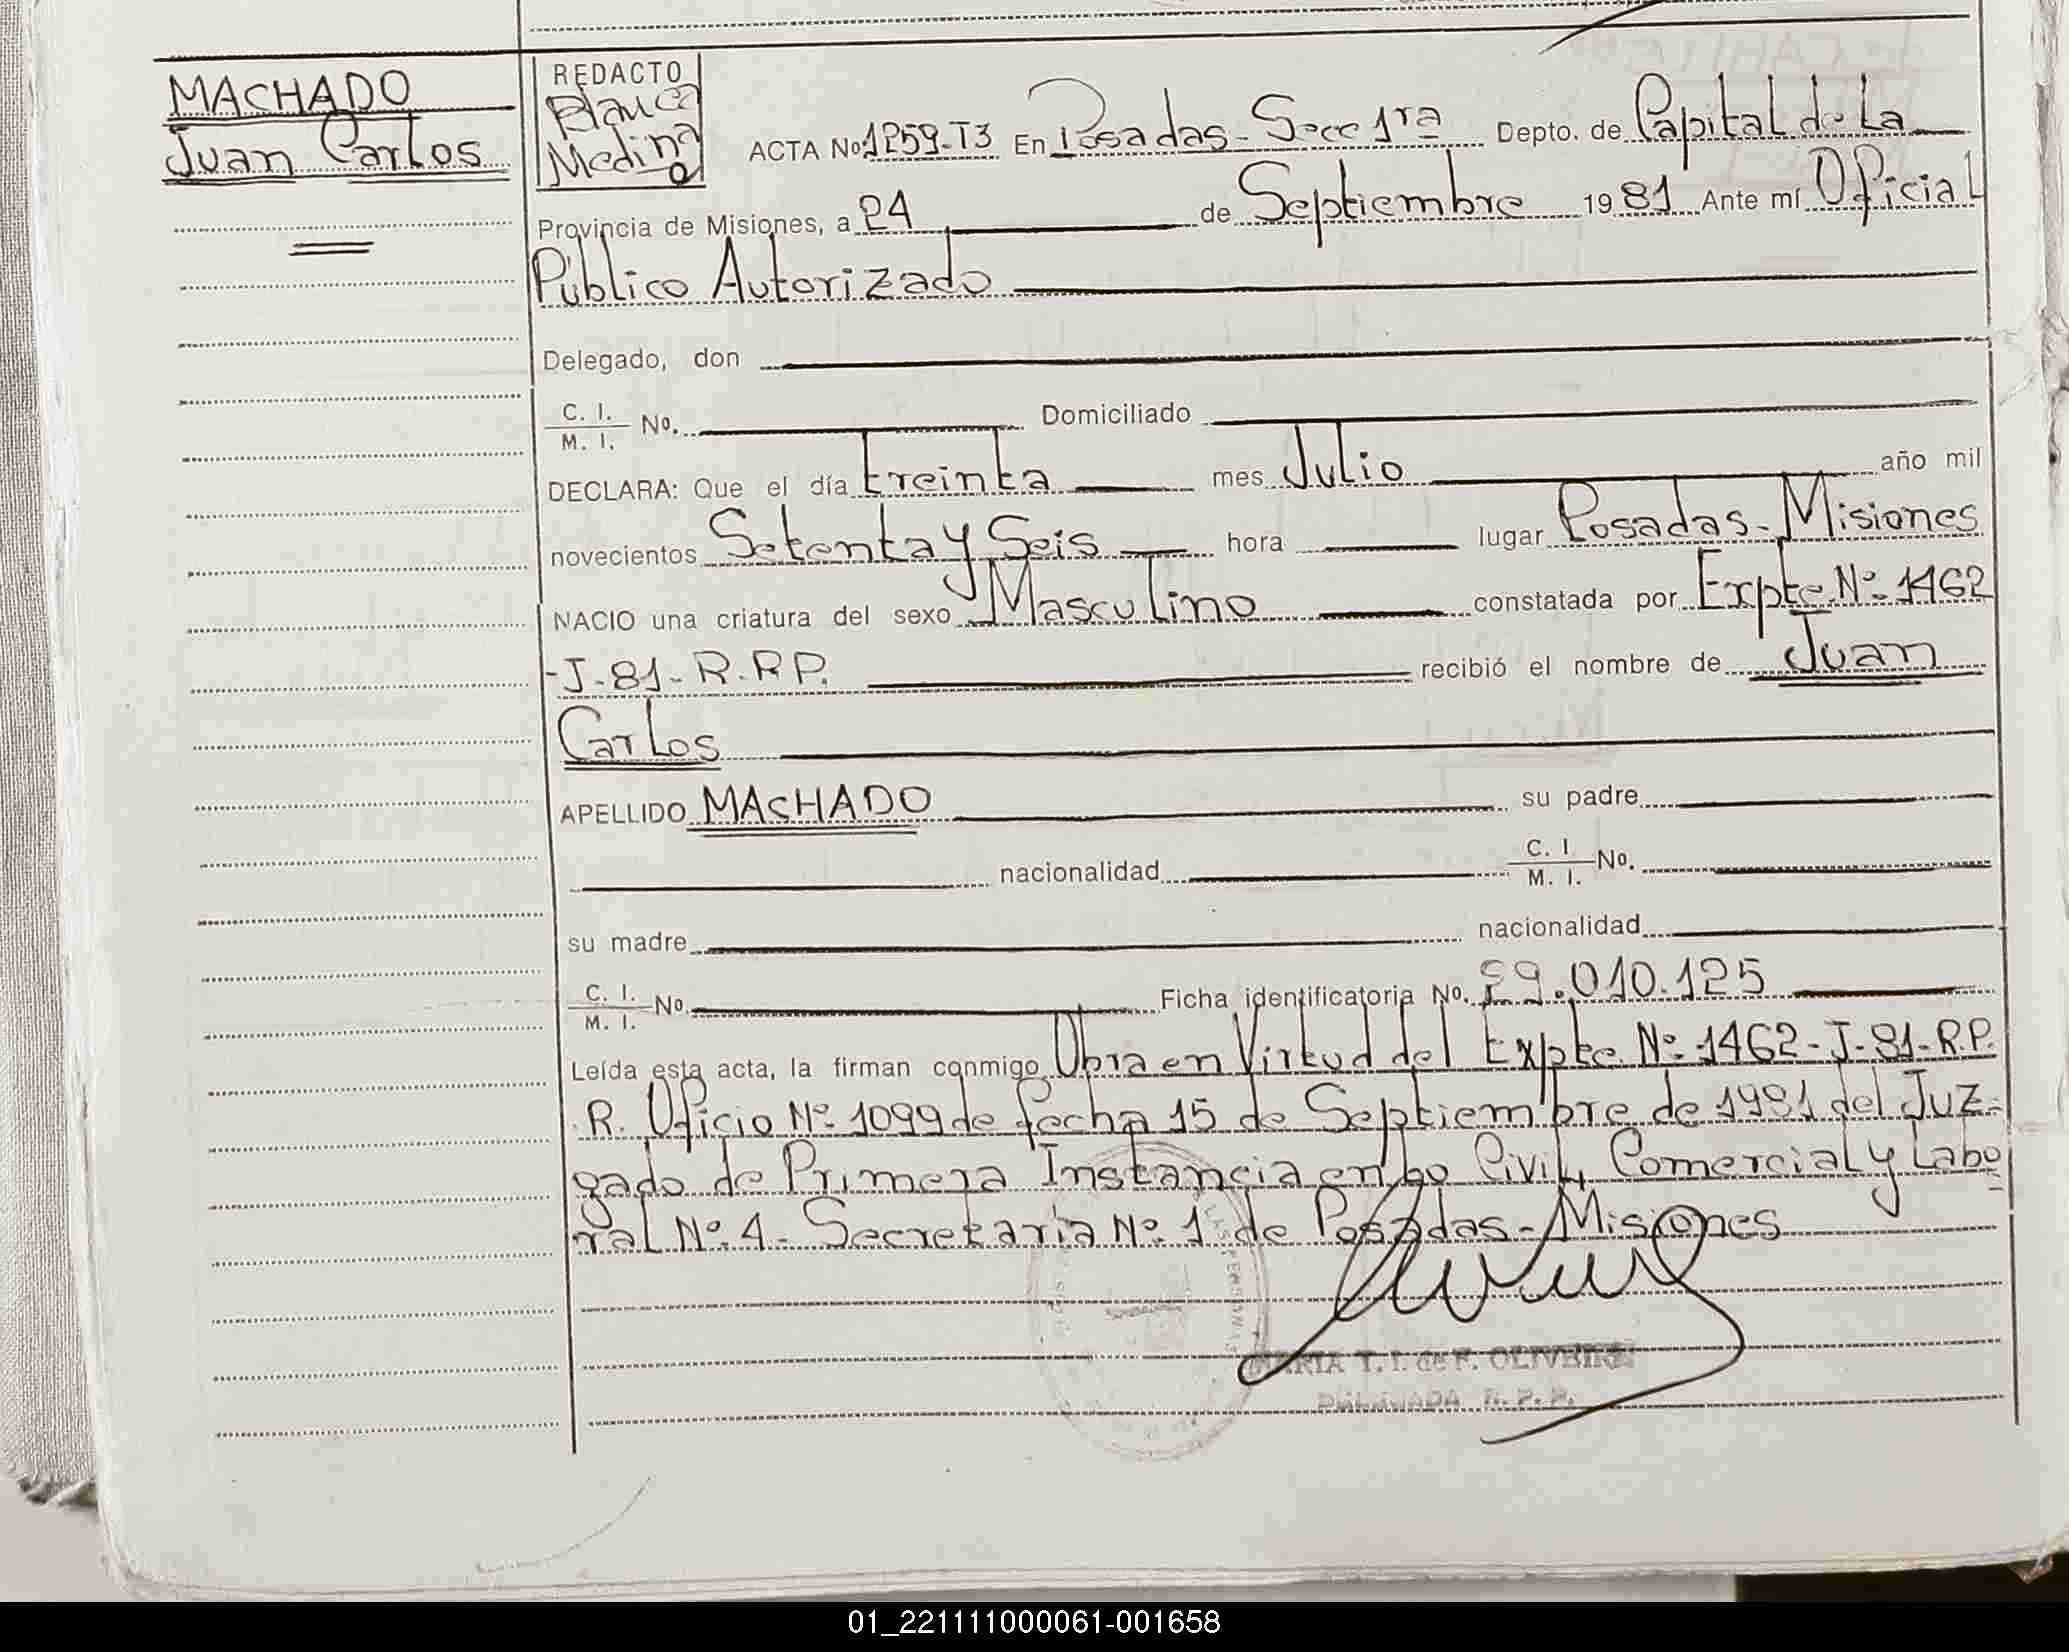 MACHADO
Juan Carlos
REDACTO
Blanca
Medina
ACTA No. 1259-T3 En Posadas-Secc 1ra Depto. de Capital de La
Provincia de Misiones, a 24 de Septiembre 1981 Ante mí Oficial
Público Autorizado
Delegado, don
C. I.
M. I. No. Domiciliado
DECLARA: Que el día treinta mes Julio año mil
novecientos Setenta y Seis hora lugar Posadas-Misiones
NACIO una criatura del sexo Masculino constatada por Expte Nº 1462
-J-81-R.R.P. recibió el nombre de Juan
Carlos
APELLIDO MACHADO su padre
nacionalidad C. I. M. I. No.
su madre nacionalidad
C. I. M. I. No. Ficha identificatoria No. 29.010.125
Leída esta acta, la firman conmigo Obra en Virtud del Expte Nº 1462-J-81-R.P.
R. Oficio Nº 1099 de fecha 15 de Septiembre de 1981 del Juz-
gado de Primera Instancia en lo Civil, Comercial y Labo
ral Nº 4 - Secretaría Nº 1 de Posadas-Misiones
MARIA T. I. de F. OLIVEIRA
DELEGADA R. P. P.
01_221111000061-001658